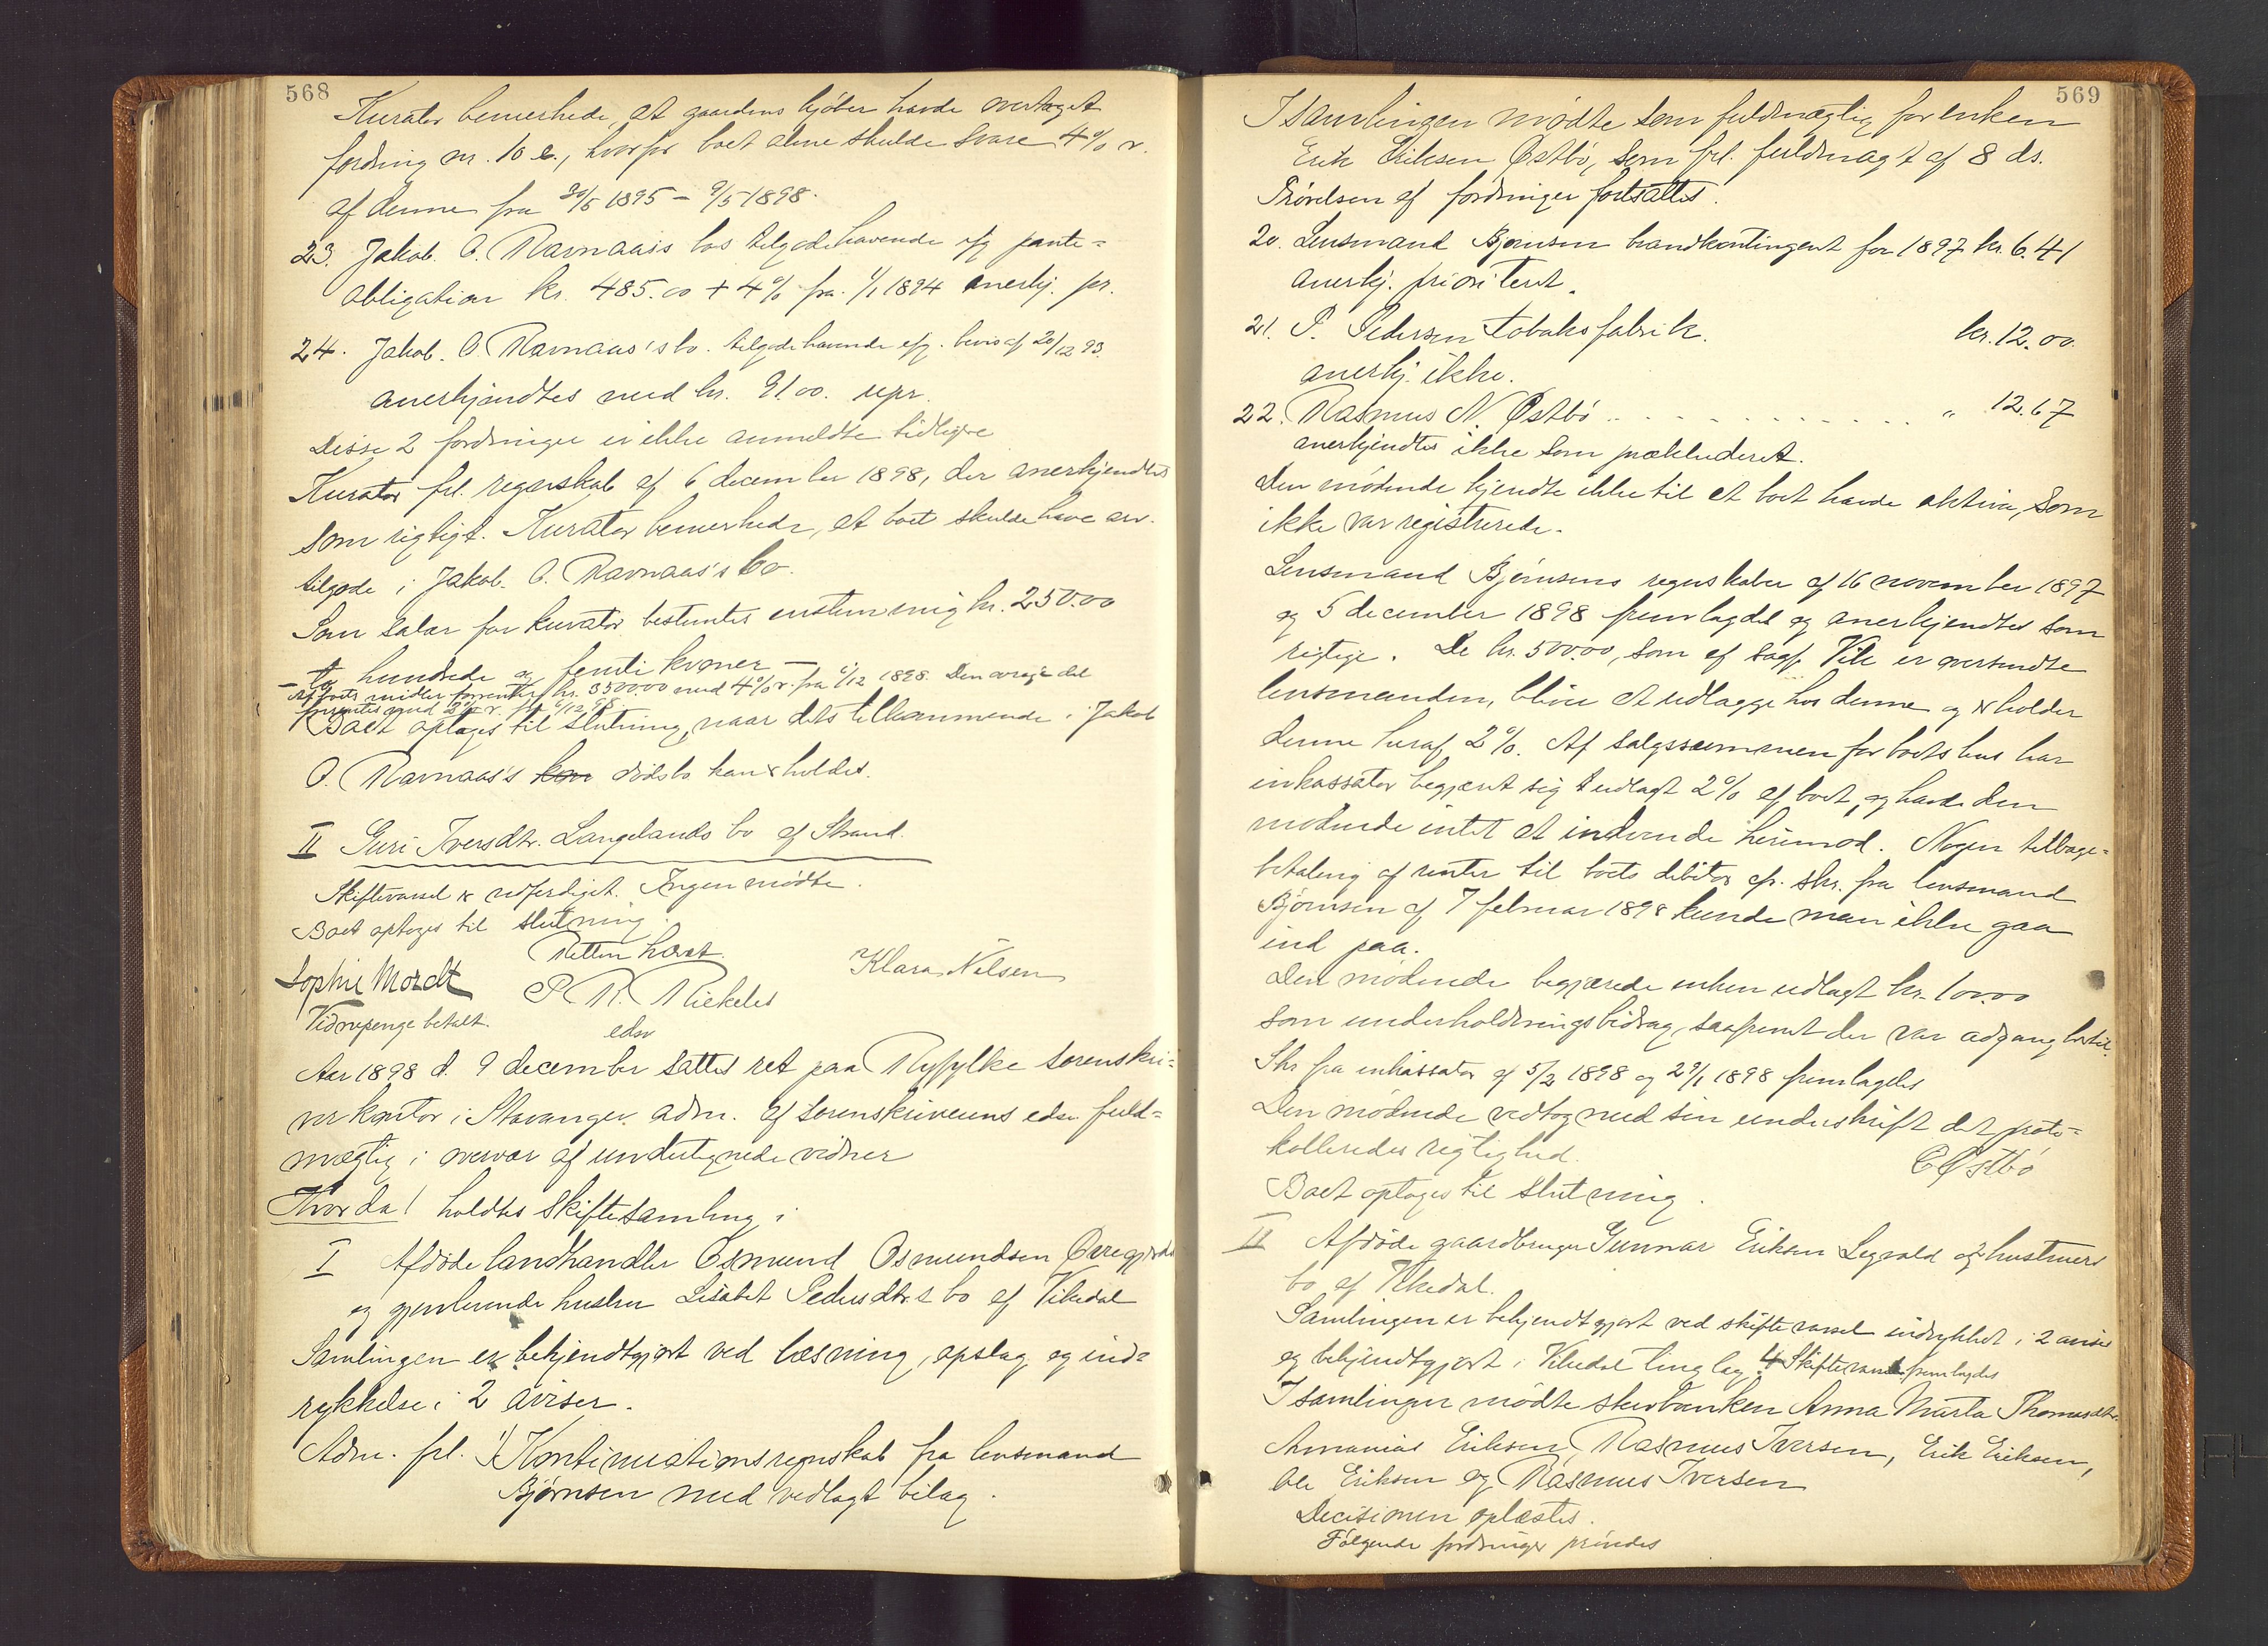 568
Kurator bemerkede, at gaardens kjøber havde overtaget
fordring nr. 10 e., hvorfor boet alene skulde svare 4% r.
af denne fra 30/5 1895 – 9/5 1898.
23. Jakob O. Ravnaas's bos tilgodehavende efg pante-
obligation kr. 485.00 + 4% fra 1/1 1894 anerkj. pr.
24. Jakob O. Ravnaas's bo. tilgodehavende efg. bevis af 20/12 93.
anerkjendtes med kr. 91.00. upr.
Disse 2 fordringer er ikke anmeldte tidligere
Kurator frl. regnskab af 6 december 1898, der anerkjendtes
som rigtigt. Kurator bemerkede, at boet skulde have arv
tilgode i Jakob O. Ravnaas's bo.
Som salær for kurator bestemtes enstemmig kr. 250.00
– to hundrede og femti kroner –
Af boets midler forrentes kr. 3500.00 med 4% r. fra 6/12 1898. Den øvrige del
forrentes med 3% r. fra 6/12 98.
Boet optages til slutning, naar dets tilkommende i Jakob
O. Ravnaas's dødsbo kan erholdes.
II Guri Iversdtr. Langelands bo af Strand.
Skiftevarsel er udferdiget. Ingen mødte.
Boet optoges til slutning.
Retten hævet.
Sophie Mordt P. R. Mickels Klara Nilsen
Vidnepenge betalt. edsv
Aar 1898 d. 9 december sattes ret paa Ryfylke sorenskri-
verkontor i Stavanger adm. af sorenskriverens edsv. fuld-
mægtig i overvær af undertegnede vidner
Hvorda! holdtes skiftesamling i
I Afdøde landhandler Osmund Osmundsen Øvregjerde
og gjenlevende hustru Lisabet Pedersdtr.s bo af Vikedal
Samlingen er bekjendtgjort ved læsning, opslag og ind-
rykkelse i 2 aviser.
Adm. frl. 1) Kontinuationsregnskab fra lensmand
Bjørnsen med vedlagt bilag.
569
I samlingen mødte som fuldmægtig for enken
Erik Eriksen Østbø, som frl. fuldmagt af 8 ds.
Prøvelsen af fordringer fortsattes.
20. Lensmand Bjørnsen brandkontingent for 1897 kr. 6.41
anerkj. prioriteret.
21. P. Pedersen tobaksfabrik. kr. 12.00.
anerkj. ikke.
22. Rasmus N. Østbø . . . . . . . . . . . „ 12.67
anerkjendtes ikke som prækluderet.
Den mødende kjendte ikke til at boet havde aktiva, som
ikke var registrerede.
Lensmand Bjørnsens regnskaber af 16 november 1897
og 5 december 1898 fremlagdes og anerkjendtes som
rigtige. De kr. 500.00, som af sagf. Vik er oversendte
lensmanden, bliver at udlægge hos denne og erholder
denne heraf 2%. Af salgssummen for boets hus har
inkassator begjæret sig udlagt 2% af boet, og havde den
mødende intet at indvende herimod. Nogen tilbage-
betaling af renter til boets debitor cfr. skr. fra lensmand
Bjørnsen af 7 februar 1898 kunde man ikke gaa
ind paa.
Den mødende begjærede enken udlagt kr. 100.00
som underholdningsbidrag, saafremt der var adgang hertil.
Skr fra inkassator af 5/2 1898 og 29/1 1898 fremlagdes
Den mødende vedtog med sin underskrift det proto-
kolleredes rigtighed.
E Østbø
Boet optoges til slutning.
II Afdøde gaardbruger Gunnar Eriksen Legvold og hustrues
bo af Vikedal.
Samlingen er bekjendtgjort ved skiftevarsel indrykket i 2 aviser
og bekjendtgjort i Vikedal tinglag. Skiftevarsel fremlagdes
I samlingen mødte stervbœnken Anna Marta Thomasdtr.
Ammanias Eriksen, Rasmus Iversen, Erik Eriksen,
Ole Eriksen og Rasmus Iversen
Decisionen oplæstes.
Følgende fordringer prøvedes